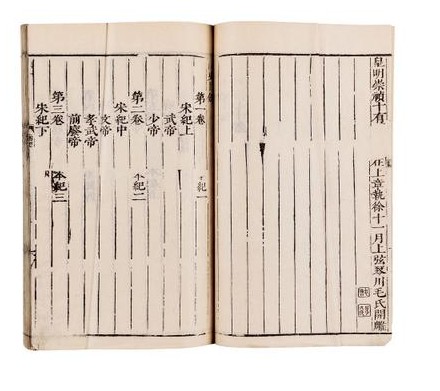 皇明崇禎十有
在上章執徐十一月上弦琴川毛氏開雕
第一卷 紀一
宋紀上
武帝
少帝
第二卷 本紀二
宋紀中
文帝
孝武帝
前廢帝
第三卷 本紀三
宋紀下